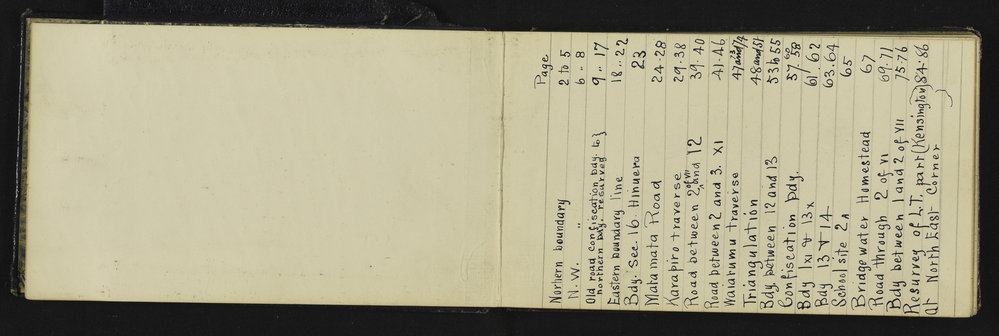 Page
Norhern boundary 2 to 5
N.W. " 6 .. 8
Old road confiscation bdy. to }
northern bdy. resurvey } 9 .. 17
Eastern boundary line 18 .. 22
Bdy. Sec. 16. Hinuera 23
Matamata Road 24-28
Karapiro traverse 29.38
Road between 2 of VII and 12 39.40
Road between 2 and 3. XI 41.46
Waiarumu traverse 47 and 73/74
Triangulation 48 and 51
Bdy between 12 and 13 53 to 55
Confiscation bdy. 57.58
Bdy 1 XI & 13 X 61.62
Bdy 13 & 14 63.64
School site 2A 65
Bridgewater Homestead 67
Road through 2 of VI 69.71
Bdy between 1 and 2 of VII 75.76
Resurvey of L.T. part (Kensington) } 84.86
at North East Corner }